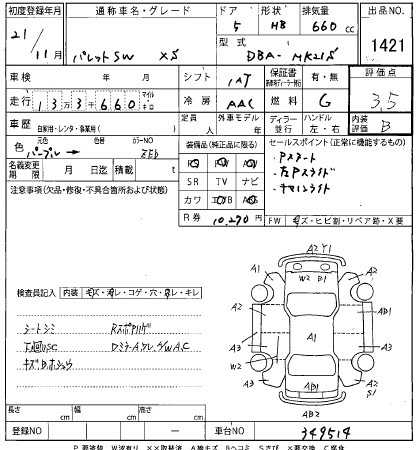 初度登録年月 通称車名・グレード ドア 形状 排気量 出品NO.
21/11月 パレットSW XS 5 HB 660 cc 1421
型式 DBA-MK21S
車検 年 月 シフト IAT 保証書 有・無 評価点
走行 13万3千660 マイル キロ 冷房 AAC 燃料 G 3.5
車歴 自家用・レンタ・事業用( ) 定員 人 外車モデル 年 ディーラー 並行 ハンドル 左・右 内装評価 B
色 元色 パープル → 色替 カラーNO ZED 装備品(純正品に限る) セールスポイント(正常に機能するもの)
名義変更期限 月 日迄 積載 t PS PW ・Pスタート
注意事項(欠品・修復・不具合箇所および状態) SR TV ナビ ・左Pスライド
カワ エアB AB
R券 10,270円 FW キズ・ヒビ割・リペア跡・X要
検査員記入 内装 キズ・汚レ・コゲ・穴・スレ・キレ
シートシミ
下廻りSC
A2 Y1
A1 W2 B1 A2
A2 A1 AB1
A3 W2 A3
A3 AB1 A2
S1
AB2
長さ cm 幅 cm 高さ cm
登録NO ー 車台NO 349514
P要塗装 W波有り XX取替済 A線キズ Bヘコミ Sサビ X要交換 C腐食